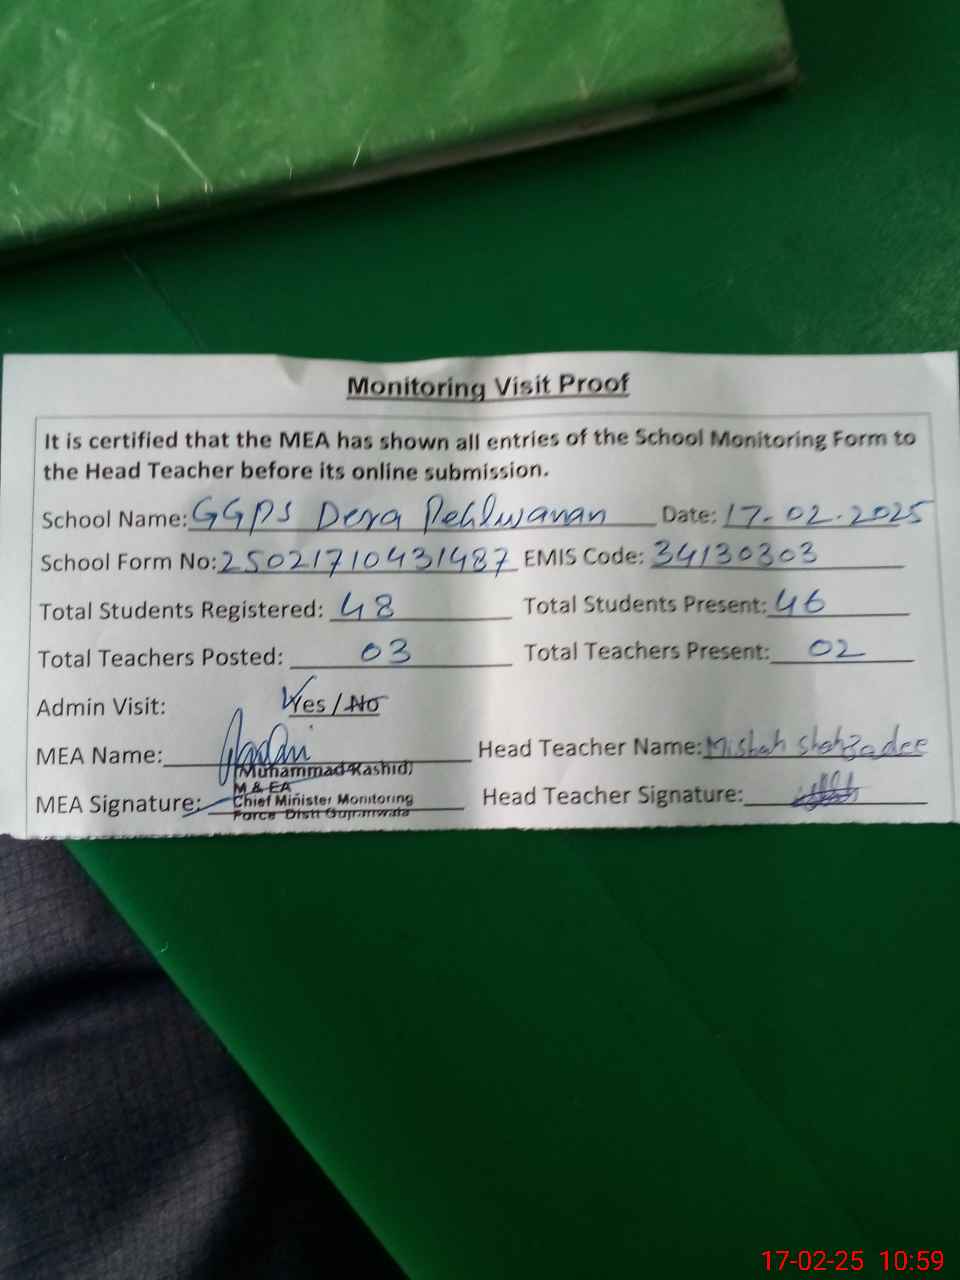 Monitoring Visit Proof
It is certified that the MEA has shown all entries of the School Monitoring Form to
the Head Teacher before its online submission.
School Name: GGPS Dera Pehlwanan Date: 17-02-2025
School Form No: 25021710431487 EMIS Code: 34130303
Total Students Registered: 48 Total Students Present: 46
Total Teachers Posted: 03 Total Teachers Present: 02
Admin Visit: Yes / No
MEA Name: Head Teacher Name: Misbah Shahzadee
(Muhammad Rashid)
M & EA
MEA Signature: Chief Minister Monitoring Head Teacher Signature:
Force Distt Gujranwala
17-02-25 10:59